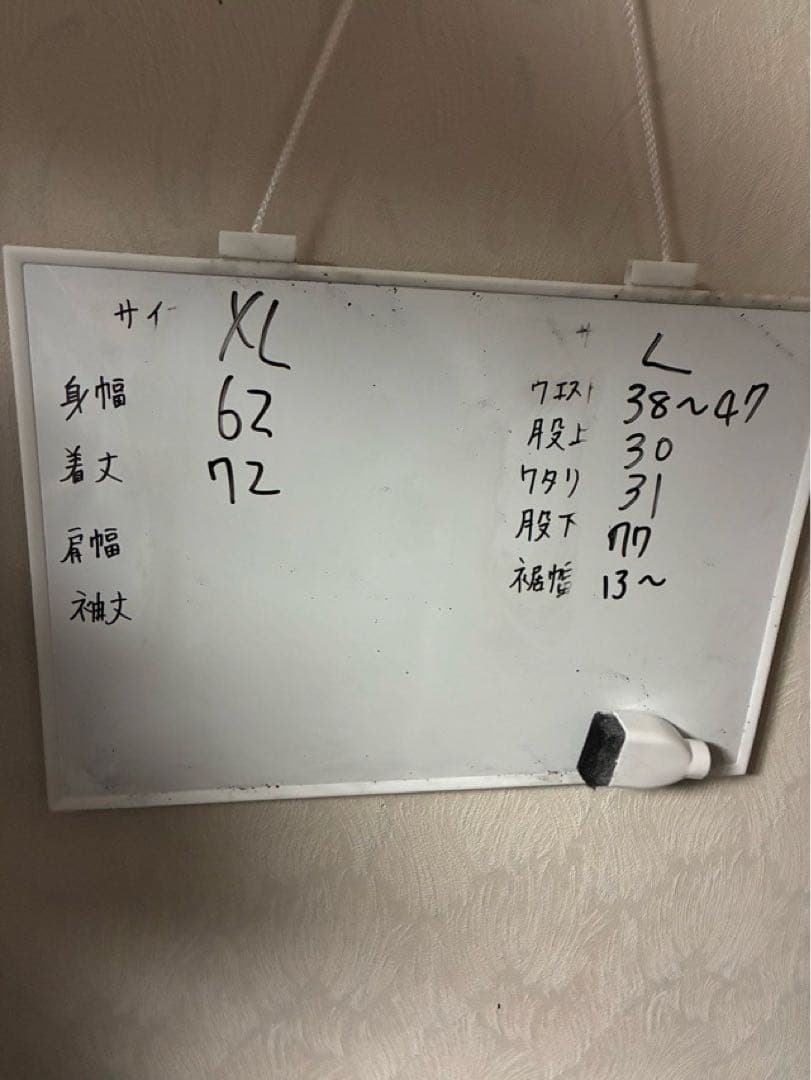 サイ XL
身幅 62
着丈 72
肩幅
袖丈
サ L
ウエスト 38〜47
股上 30
ワタリ 31
股下 77
裾幅 13〜